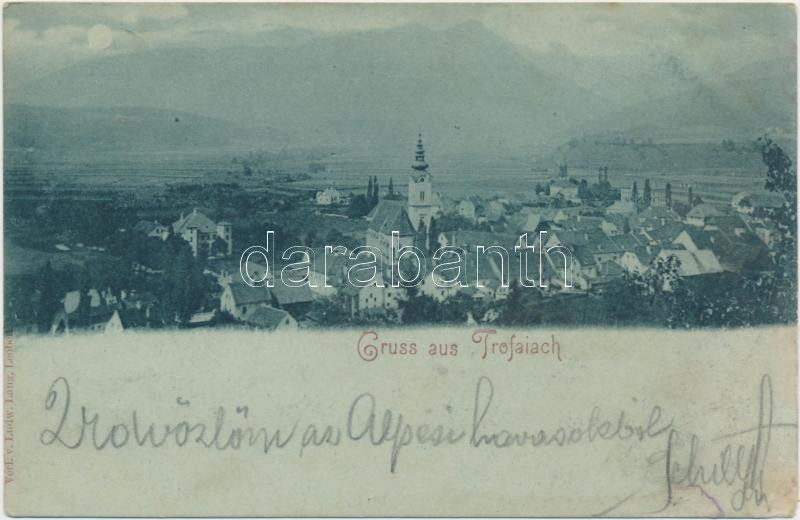 darabanth
Gruss aus Trofaiach
Verl. v. Ludw. Lang, Leoben
Üdvözlöm az Alpesi havasokból